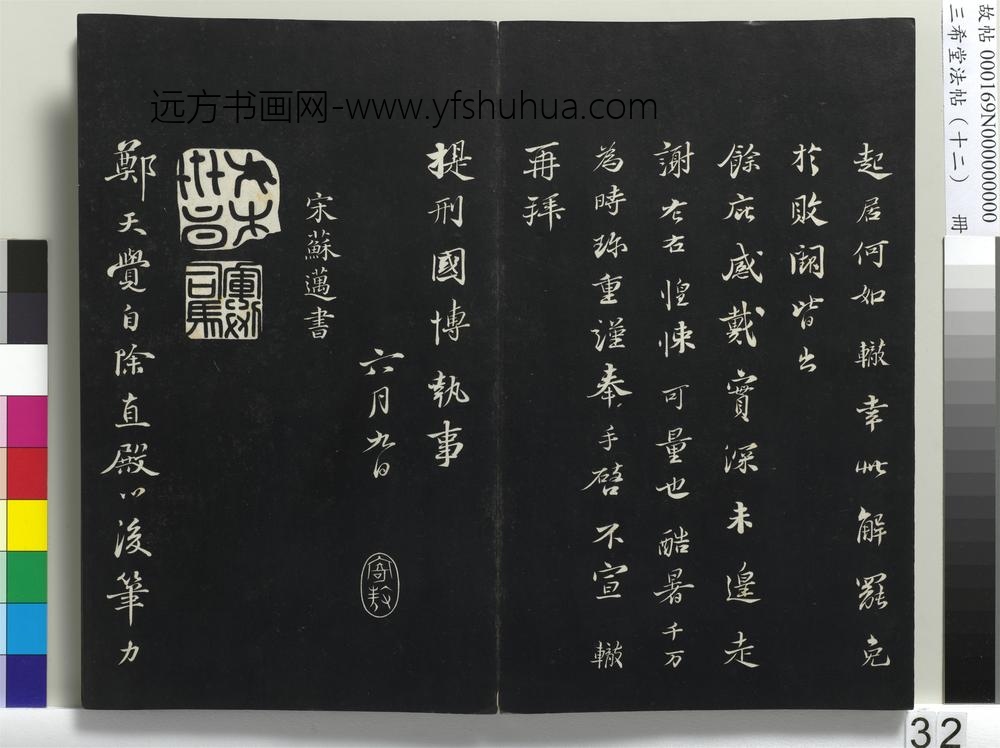 起居何如轍幸此解罷免
於敗闕皆出
餘庇感戴實深未遑走
謝左右惶悚可量也酷暑千万
為時珎重謹奉手啓不宣 轍
再拜
提刑國博執事
六月九日
宋蘇邁書
鄭天覺自除直殿以後筆力
远方书画网-www.yfshuhua.com
故帖 000169N000000000
三希堂法帖（十二） 册
32